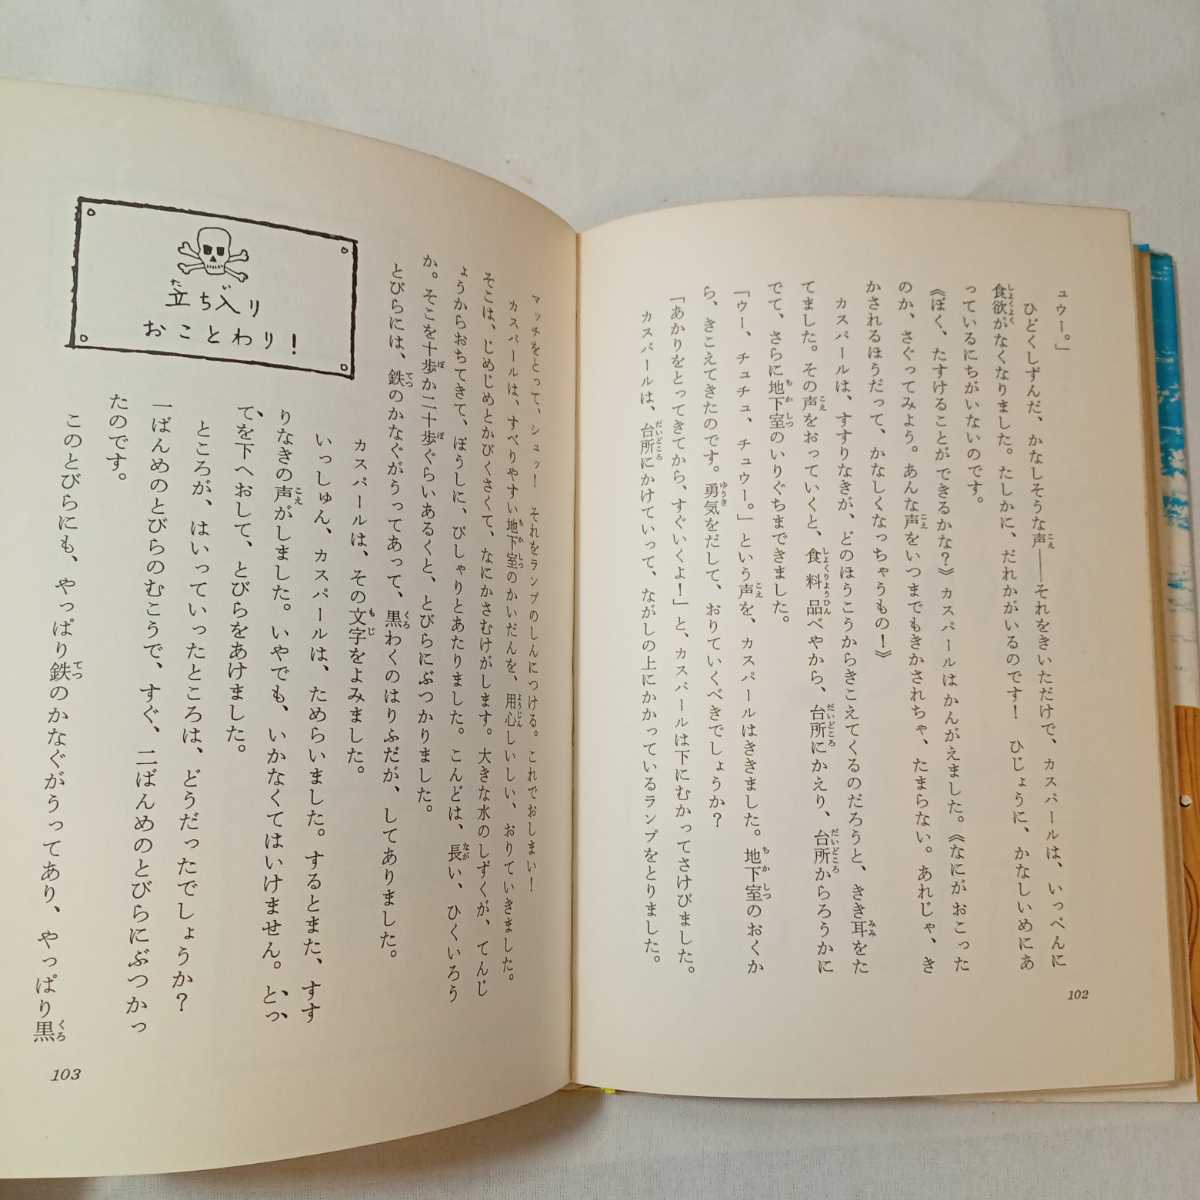 ュウー。」
ひどくしずんだ、かなしそうな声――それをきいただけで、カスパールは、いっぺんに
食欲がなくなりました。たしかに、だれかがいるのです！　ひじょうに、かなしいめにあ
っているにちがいないのです。
《ぼく、たすけることができるかな？》カスパールはかんがえました。《なにがおこった
のか、さぐってみよう。あんな声をいつまでもきかされちゃ、たまらない。あれじゃ、き
かされるほうだって、かなしくなっちゃうもの！》
カスパールは、すすりなきが、どのほうこうからきこえてくるのだろうと、きき耳をた
てました。その声をおっていくと、食料品べやから、台所にかえり、台所からろうかに
でて、さらに地下室のいりぐちまできました。
「ウー、チュチュ、チュウー。」という声を、カスパールはききました。地下室のおくか
ら、きこえてきたのです。勇気をだして、おりていくべきでしょうか？
「あかりをとってきてから、すぐいくよ！」と、カスパールは下にむかってさけびました。
カスパールは、台所にかけていって、ながしの上にかかっているランプをとりました。
102
マッチをとって、シュッ！　それをランプのしんにつける。これでおしまい！
カスパールは、すべりやすい地下室のかいだんを、用心しいしい、おりていきました。
そこは、じめじめとかびくさくて、なにかさむけがします。大きな水のしずくが、てんじ
ょうからおちてきて、ぼうしに、ぴしゃりとあたりました。こんどは、長い、ひくいろう
か。そこを十歩か二十歩ぐらいあるくと、とびらにぶつかりました。
とびらには、鉄のかなぐがうってあって、黒わくのはりふだが、してありました。
カスパールは、その文字をよみました。
立ち入り
おことわり！
いっしゅん、カスパールは、ためらいました。するとまた、すす
りなきの声がしました。いやでも、いかなくてはいけません。とっ
てを下へおして、とびらをあけました。
ところが、はいっていったところは、どうだったでしょうか？
一ばんめのとびらのむこうで、すぐ、二ばんめのとびらにぶつかっ
たのです。
このとびらにも、やっぱり鉄のかなぐがうってあり、やっぱり黒
103